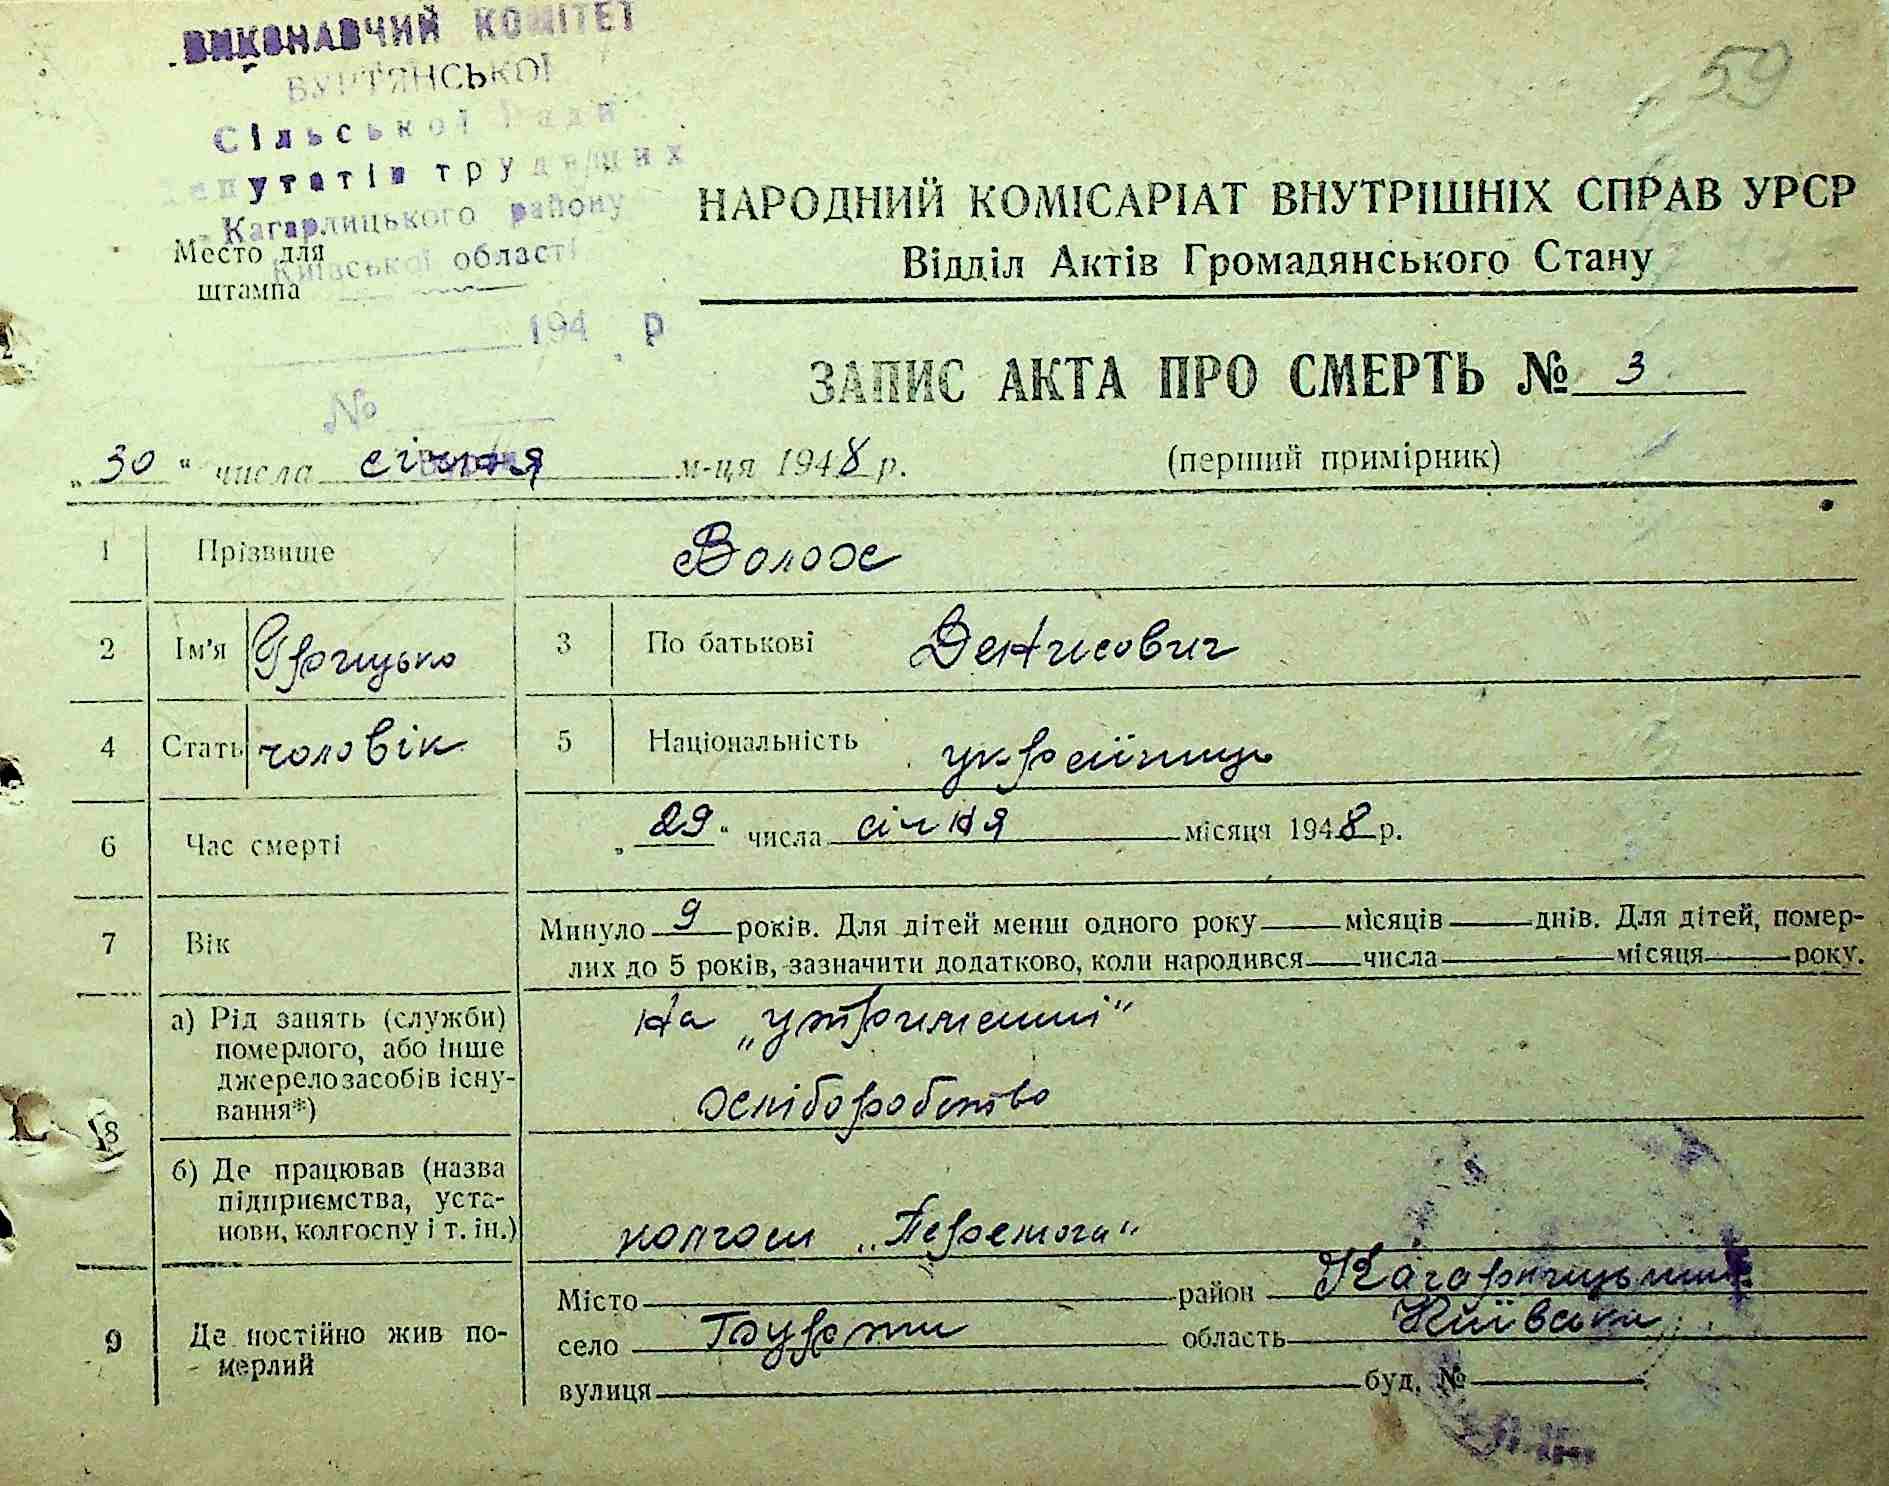 ВИКОНАВЧИЙ КОМІТЕТ
БУРТЯНСЬКОЇ
Сільської Ради
Депутатів трудящих
Кагарлицького району
Київської області
Место для
штампа
194 р
№
59
НАРОДНИЙ КОМІСАРІАТ ВНУТРІШНІХ СПРАВ УРСР
Відділ Актів Громадянського Стану
ЗАПИС АКТА ПРО СМЕРТЬ № 3
„30“ числа січня м-ця 1948 р. (перший примірник)
1 Прізвище Волох
2 Ім'я Грицько 3 По батькові Денисович
4 Стать чоловік 5 Національність українець
6 Час смерті „29“ числа січня місяця 1948 р.
7 Вік Минуло 9 років. Для дітей менш одного року — місяців — днів. Для дітей, помер-
лих до 5 років, зазначити додатково, коли народився — числа — місяця — року.
8 а) Рід занять (служби)
померлого, або інше
джерело засобів існу-
вання*)
на „утриманні“
хліборобство
б) Де працював (назва
підприємства, уста-
нови, колгоспу і т. ін.)
колгосп „Перемога“
9 Де постійно жив по-
мерлий
Місто — район Кагарлицький
село Бурти область Київська
вулиця — буд. № —